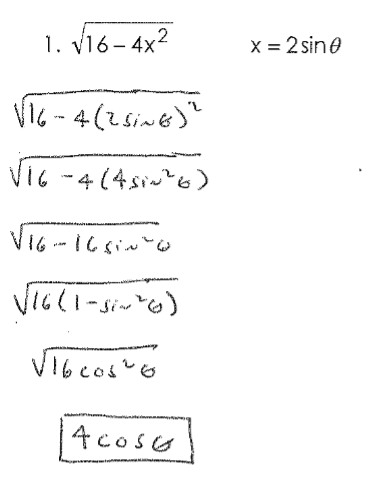 1. √16 – 4x² x = 2 sin θ
√16 - 4(2 sin θ)²
√16 - 4(4 sin² θ)
√16 - 16 sin² θ
√16(1 - sin² θ)
√16 cos² θ
4 cos θ